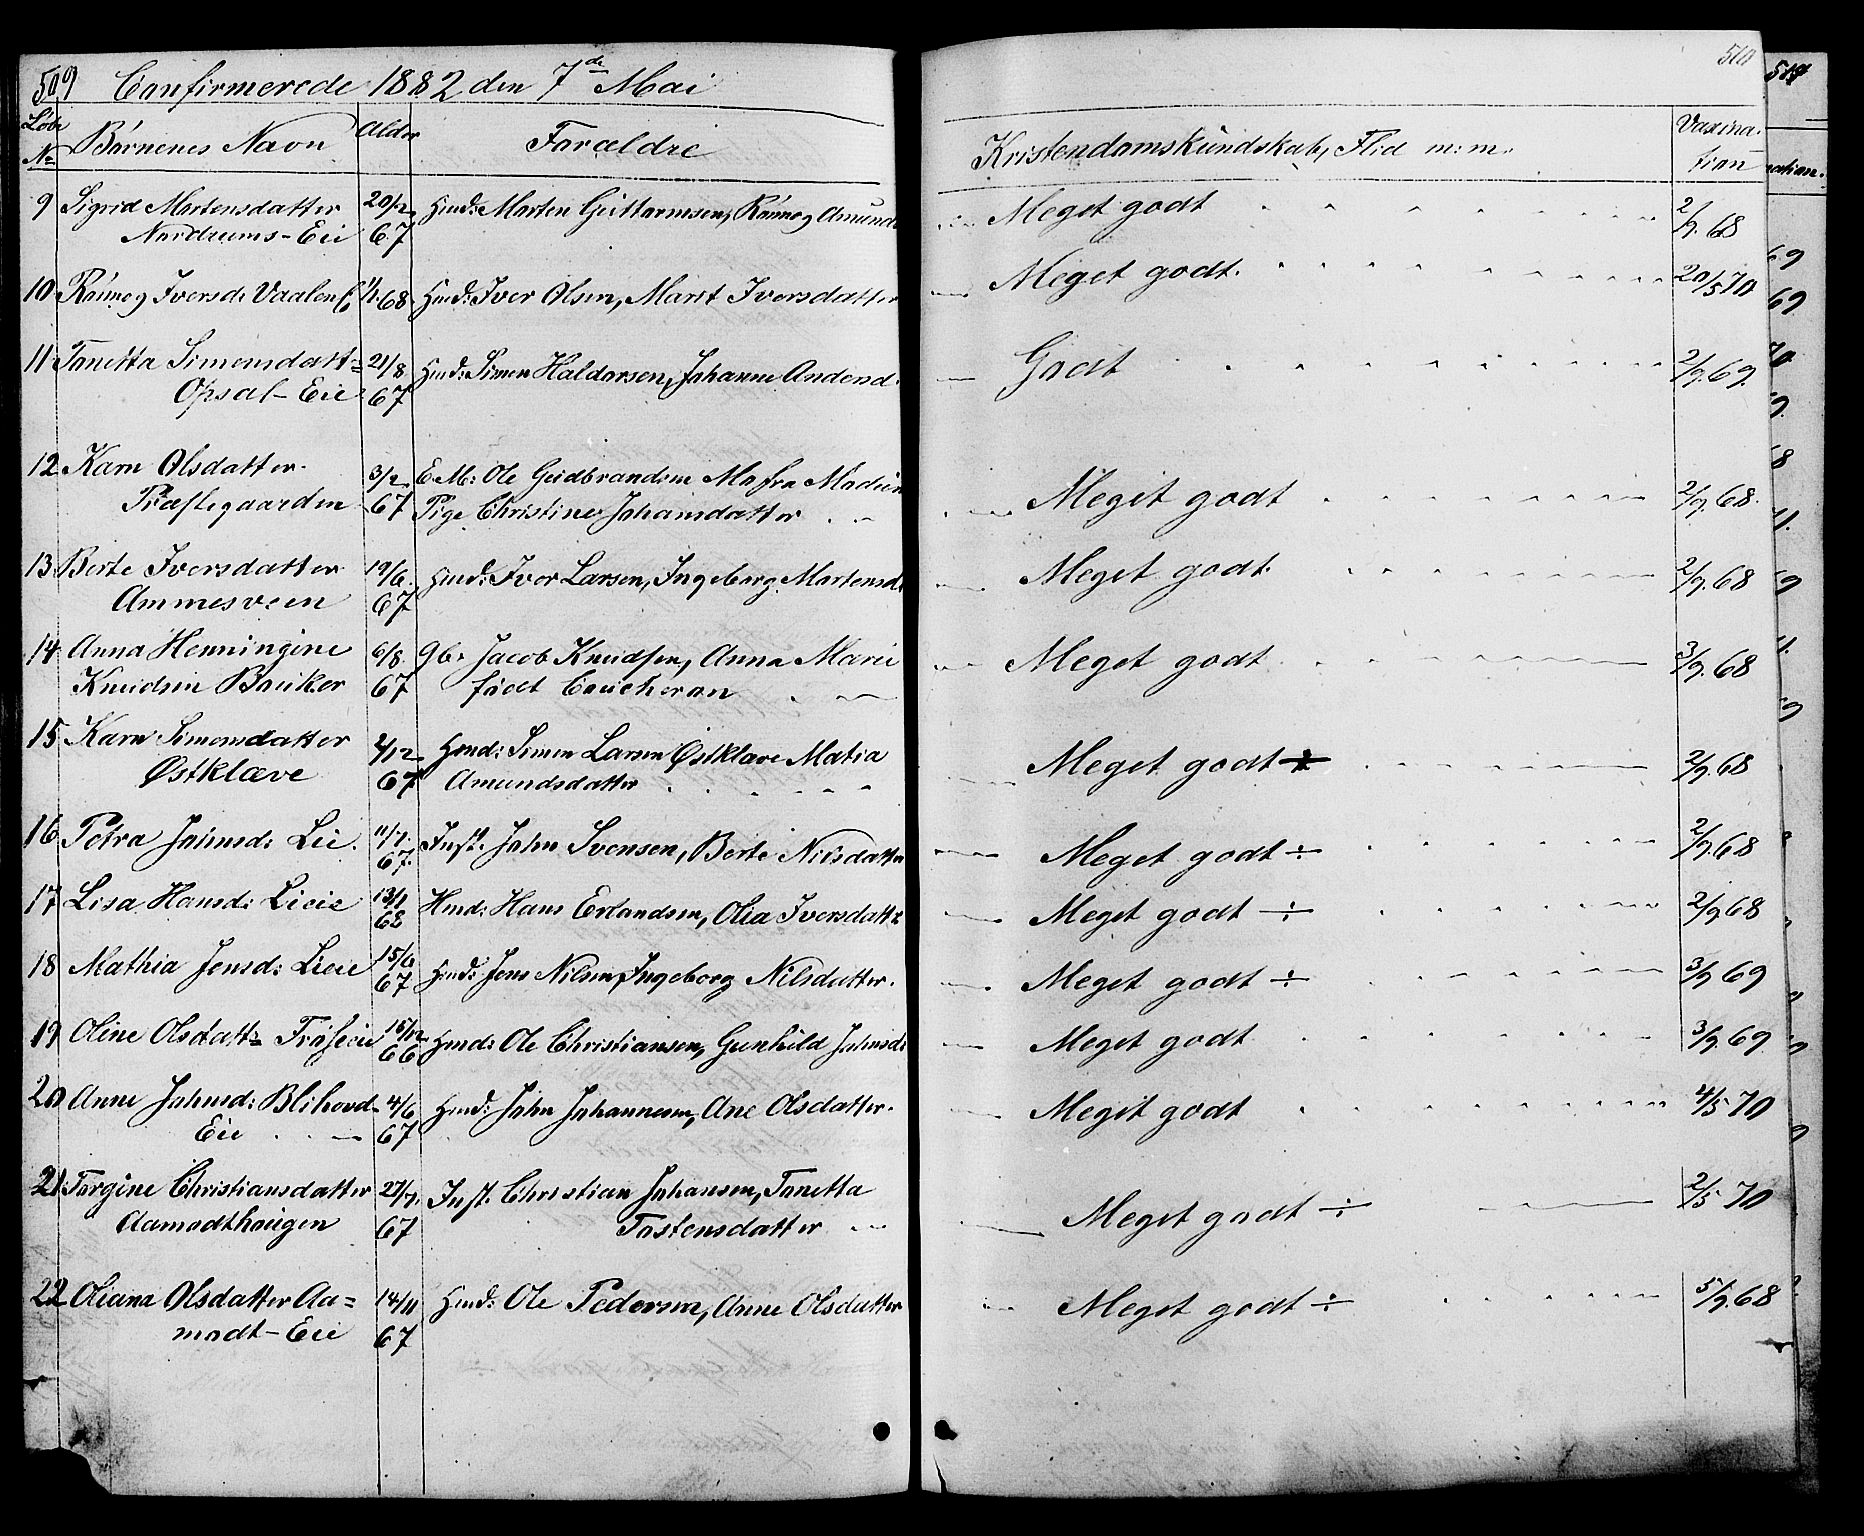 509 Confirmerede 1882 den 7de Mai
Løbe No Børnenes Navn Alder Forældre
9 Sigrid Mortensdatter 20/12 Hmd: Morten Guttormsen, Rønnog Amunds
Nordrums-Eie 67
10 Rønnog Iversd: Vaalen E 68 Hmd: Iver Olsen, Marit Iversdatter
11 Tonetta Simensdatt= 21/8 Hmd: Simen Haldorsen, Johanne Andersd.
Opsal-Eie 67
12 Karn Olsdatter 3/12 E.M: Ole Gudbrandsen Mofra Modum
Præstegaarden 67 Pige Christine Johansdatter
13 Berte Iversdatter 19/6 Hmd: Iver Larsen, Ingeborg Mortensd:
Ammesveen 67
14 Anna Henningine 6/8 Gb: Jacob Knudsen, Anna Marie
Knudsen Bauker 67 født Coucheron
15 Karn Simensdatter 2/12 Hmd: Simen Larsen Østklæve Matia
Østklæve 67 Amundsdatter
16 Petra Johnsd: Lie 11/7 67 Inst. John Svensen, Berte Nilsdatter
17 Lisa Hansd: Lieie 13/1 68 Hmd: Hans Erlandsen, Olia Iversdatt=
18 Mathia Jensd: Lieie 15/6 67 Hmd: Jens Nilsen, Ingeborg Nilsdatter.
19 Oline Olsdatt= 15/12 66 Hmd: Ole Christiansen, Gunhild Johnsd:
20 Anne Johnsd: Blihovd- 4/6 Hmd: John Johannesen, Ane Olsdatter.
Eie 67
21 Torgine Christiansdatter 27/7 Inst. Christian Johansen, Tonetta
Aamodthaugen 67 Tostensdatter
22 Oliana Olsdatter Aa= 14/11 Hmd: Ole Pedersen, Anne Olsdatter
modt-Eie 67
510
Kristendomskundskab, Flid m: m. Vaxina-
tion
Meget godt 2/9. 68
Meget godt. 20/5 70
Godt 2/9. 69.
Meget godt 2/9. 68.
Meget godt. 2/9. 68
Meget godt 3/9. 68
Meget godt ÷ 2/9. 68
Meget godt ÷ 2/9. 68
Meget godt ÷ 2/9 68
Meget godt ÷ 3/9 69
Meget godt 3/9. 69
Meget godt 4/5 70
Meget godt ÷ 2/5 70
Meget godt ÷ 5/9. 68